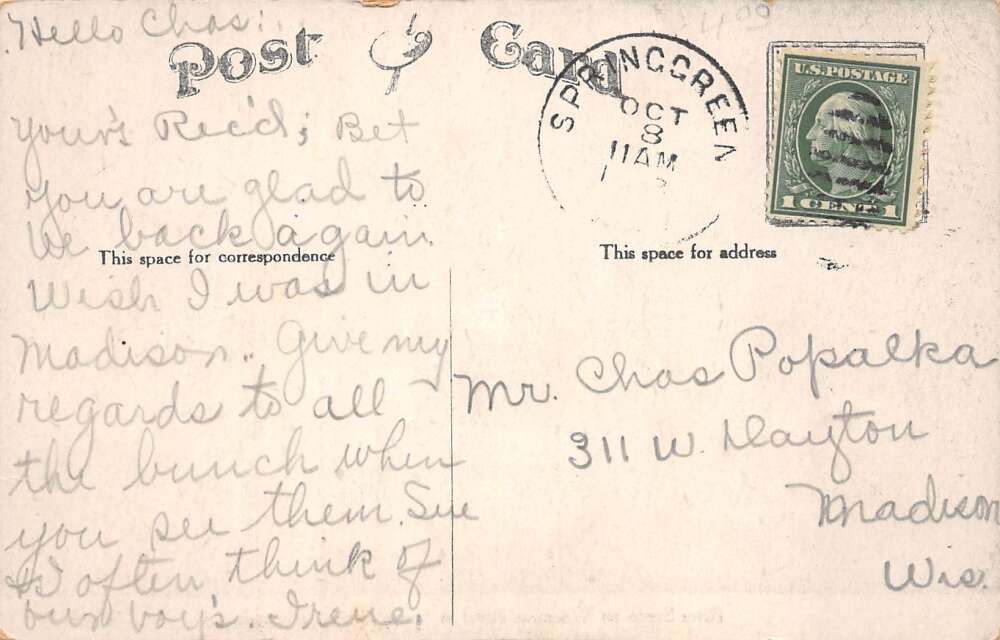 4.00
Hello Chas:
Post Card
SPRING GREEN
OCT
8
11 AM
U.S. POSTAGE
1 CENT 1
Your's Rec'd; Bet
you are glad to
be back again.
This space for correspondence
Wish I was in
Madison.. Give my
regards to all
the bunch when
you see them. Sue
& I often think of
our boy's. Irene.
This space for address
Mr. Chas Popalka
311 W. Dayton
Madison
Wis.